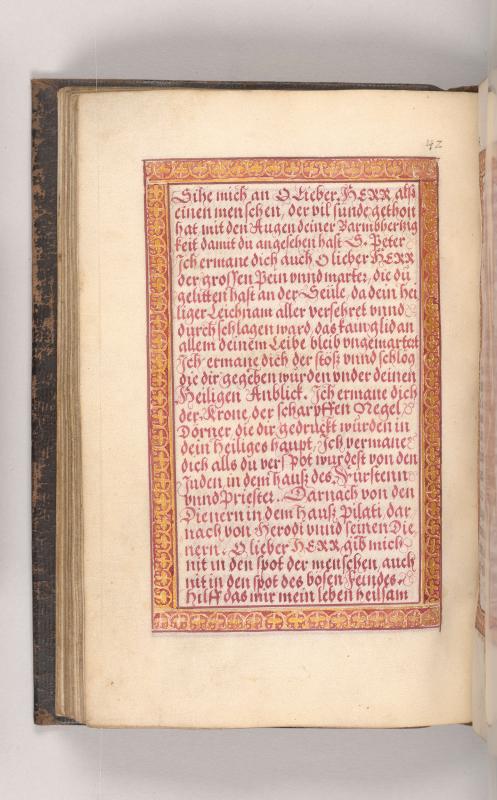 42
Sihe mich an O Lieber HERR alß
einen menschen, der vil sünde gethon
hat mit den Augen deiner Barmhhertzig
keit damit du angesehen hast S. Peter
Ich ermane dich auch O lieber HERR
der grossen Pein vnnd marter, die du
gelitten hast an der Seüle, da dein hei
liger Leichnam aller versehret vnnd
durchschlagen ward, das kain glid an
allem deinem Leibe bleib vngemartert
Ich ermane dich der stöß vnnd schleg
die dir gegeben würden vnder deinen
Heiligen Anblick. Ich ermane dich
der Krone, der scharpffen Negel
Dörner die dir gedruckt würden in
dein heiliges haupt, Ich vermane
dich alls du verspot wurdest von den
Juden in dem hauß des Fürstenn
vnnd Priester. Darnach von den
Dienern in dem hauß Pilati, dar
nach von Herodi vnnd seinen Die
nern. O lieber HERR gib mich
nit in den spot der menschen, auch
nit in den spot des bosen Feindes.
hilff das mir mein leben heilsam